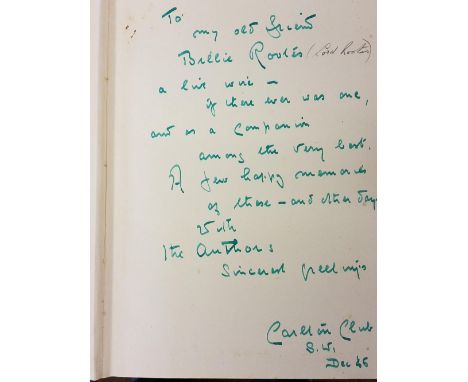 To
my old friend
Billie Rootes (Lord Rootes)
a live wire –
if there ever was one,
and as a companion
among the very best.
A few happy memories
of these – and other days
With
the Authors
Sincerest greetings
Carlton Club
S.W.
Dec 46